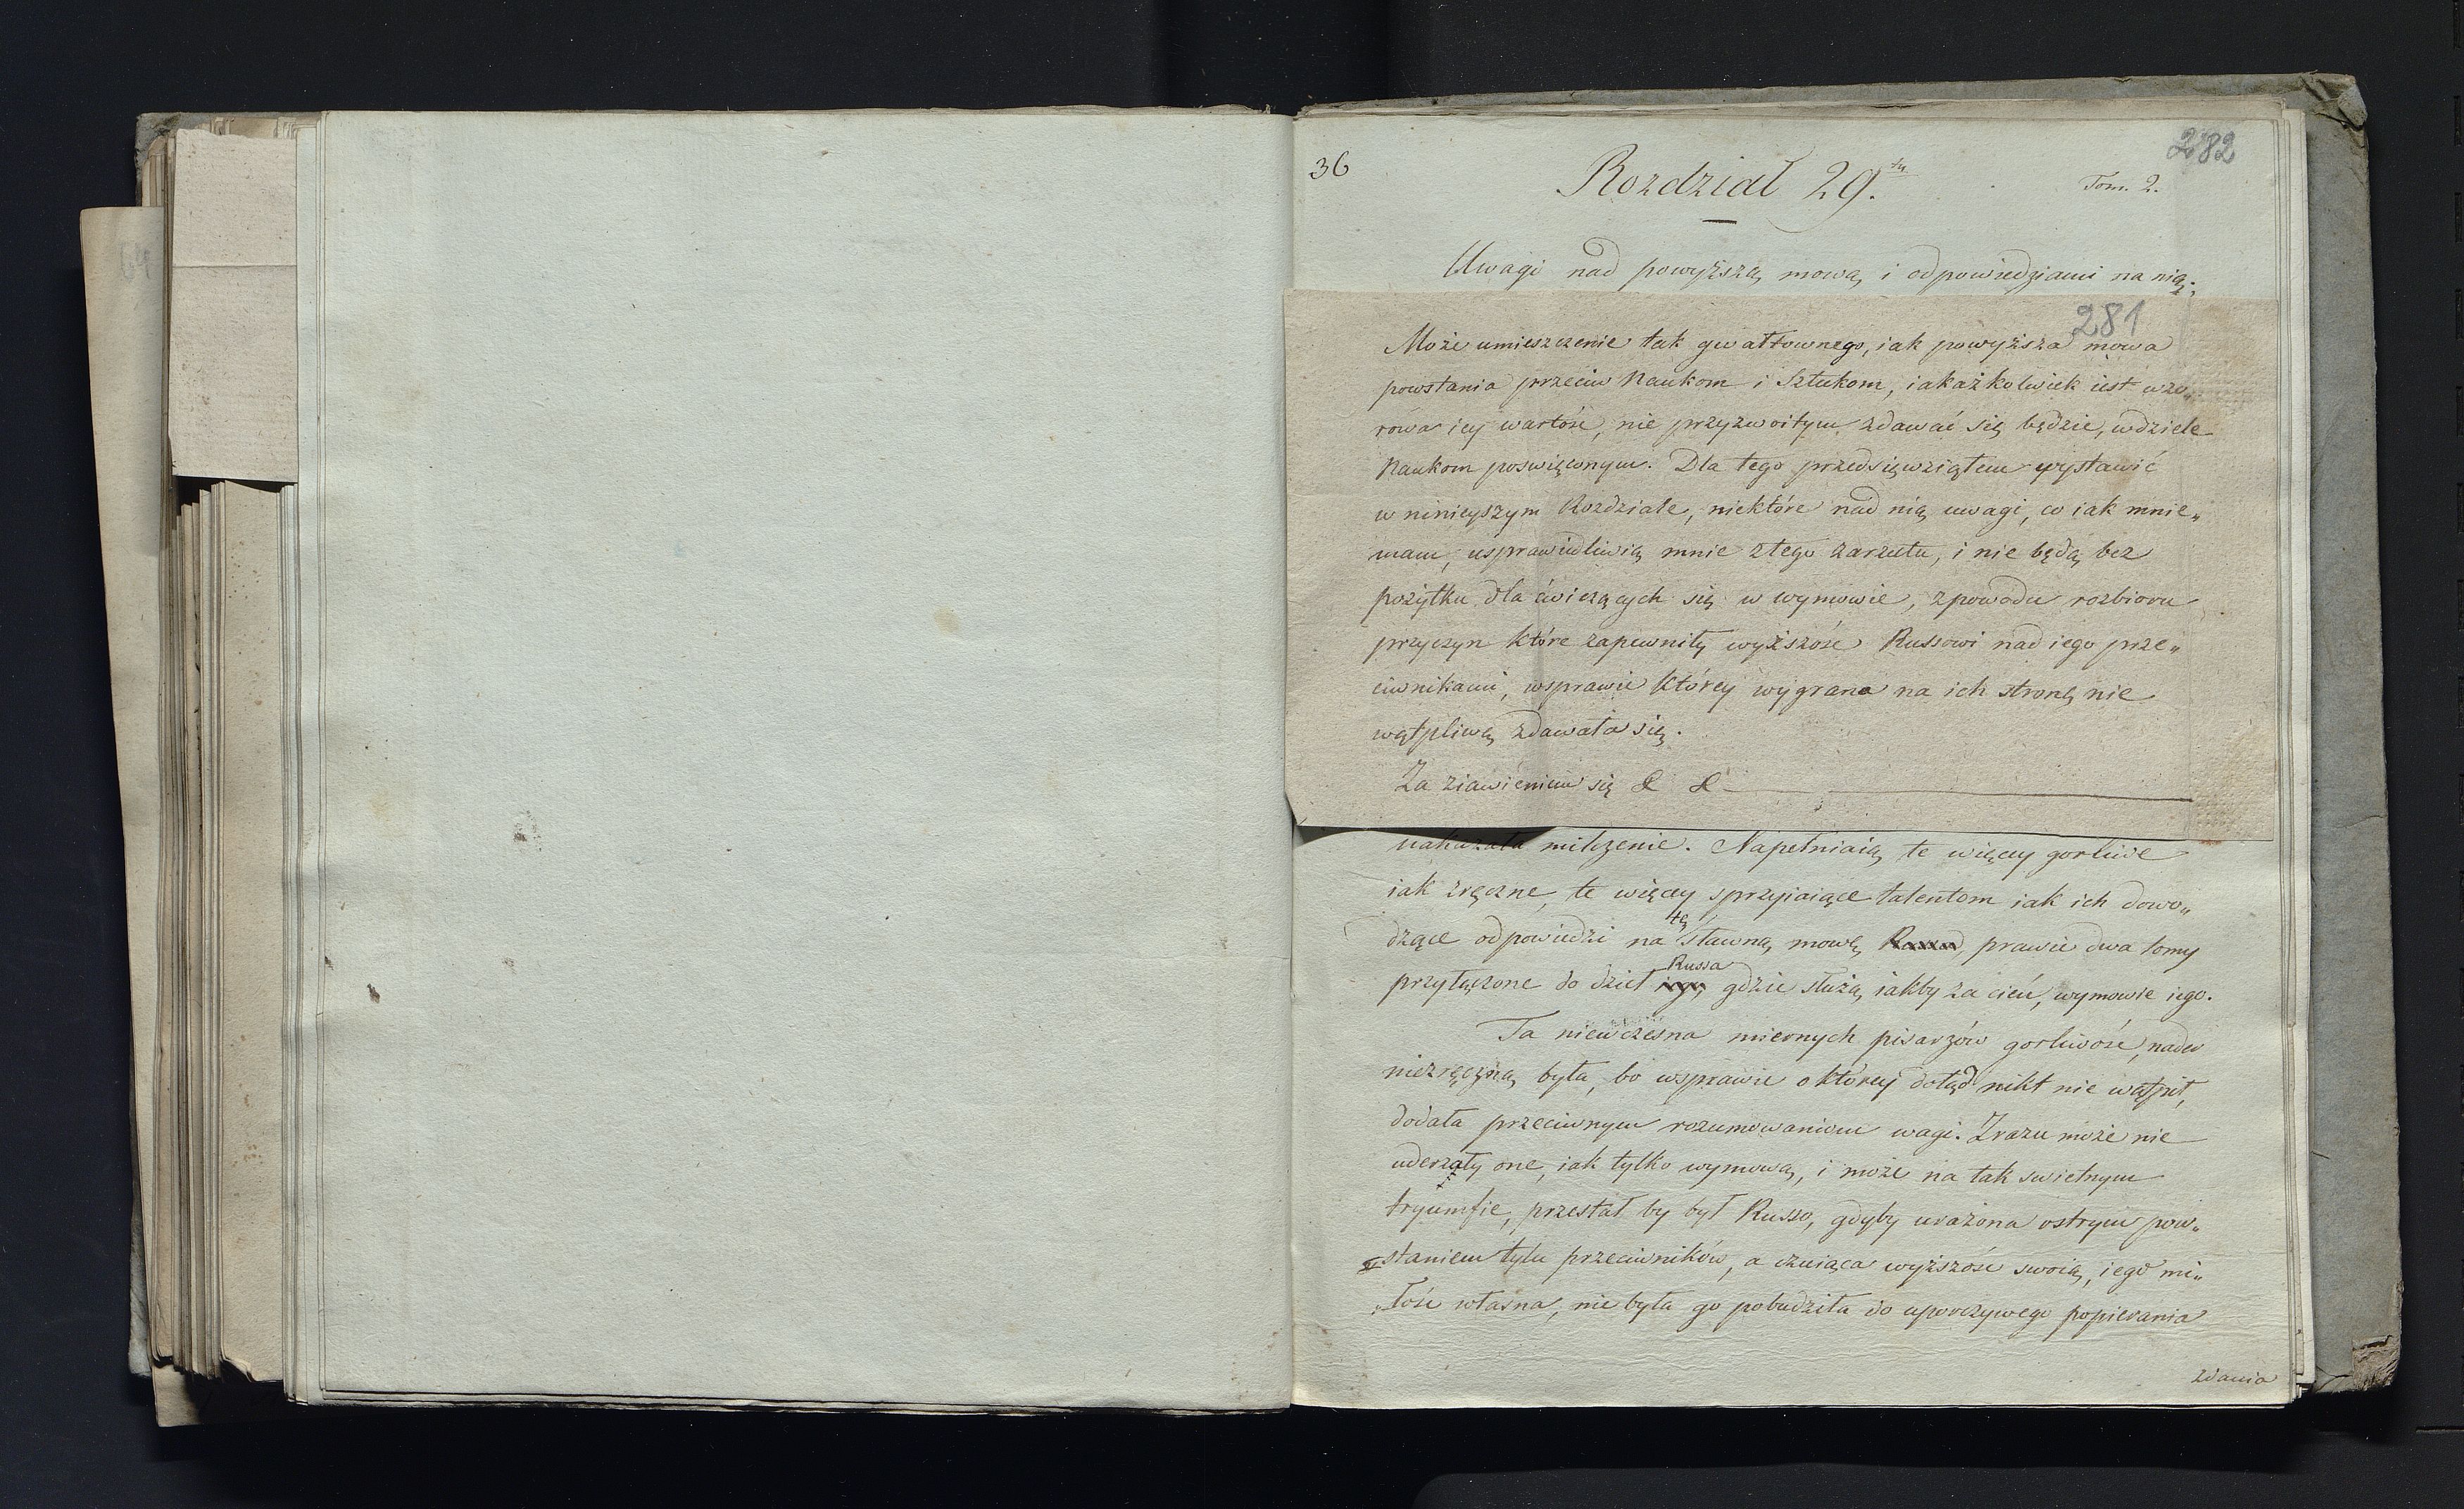 64
36
282
Rozdział 29.ty
Tom. 2.
Uwagi nad powyższą mową i odpowiedziami na nią.
281
Może umieszczenie tak gwałtownego, iak powyższa mowa
powstania przeciw Naukom i Sztukom, iakażkolwiek iest wzo„
rowa iey wartość, nie przyzwoitym zdawać się będzie, wdziele
Naukom poswięconym. Dla tego przedsięwziąłem wystawić
w ninieyszym Rozdziale, niektóre nad nią uwagi, co iak mnie„
mam, usprawiedliwią mnie ztego zarzutu, i nie będą bez
pożytku dla ćwiczących się w wymowie, zpowodu rozbioru
przyczyn które zapewniły wyższość Russowi nad iego prze„
ciwnikami, wsprawie którey wygrana na ich stronę nie
wątpliwą zdawała się.
Za ziawieniem się & &
nakazała milczenie. Napełniaią te więcey gorliwe
iak zręczne, te więcey sprzyiaiące talentom iak ich dowo„
dzące odpowiedzi na tę sławną mowę, prawie dwa tomy
przyłączone do dzieł Russa gdzie służą iakby za cień, wymowie iego.
Ta niewczesna miernych pisarzów gorliwość, nader
niezręczną była, bo wsprawie o którey dotąd nikt nie wątpił,
dodała przeciwnym rozumowaniom wagi. Zrazu może nie
uderzały one, iak tylko wymową, i może na tak swietnym
tryumfie, przestał by był Russo, gdyby urażona ostrym pow„
staniem tylu przeciwników, a czuiąca wyższość swoią, iego mi„
„łość własna, nie była go pobudziła do uporczywego popierania
zdania